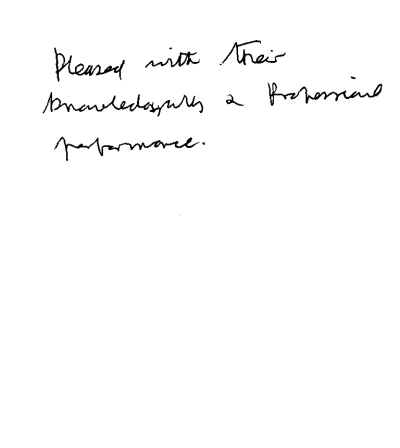 Pleased with their
knowledgeable & Professional
performance.